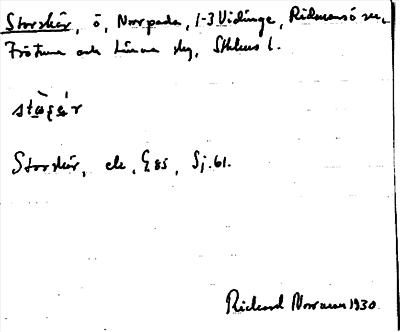 Storskär, ö, Norrpada, 1-3 Vidinge, Rådmansö sn,
Frötuna och Länna skg, Sthlms l.
Storskär, ek, G 85, Sj. 61.
Rickard Norrman 1930